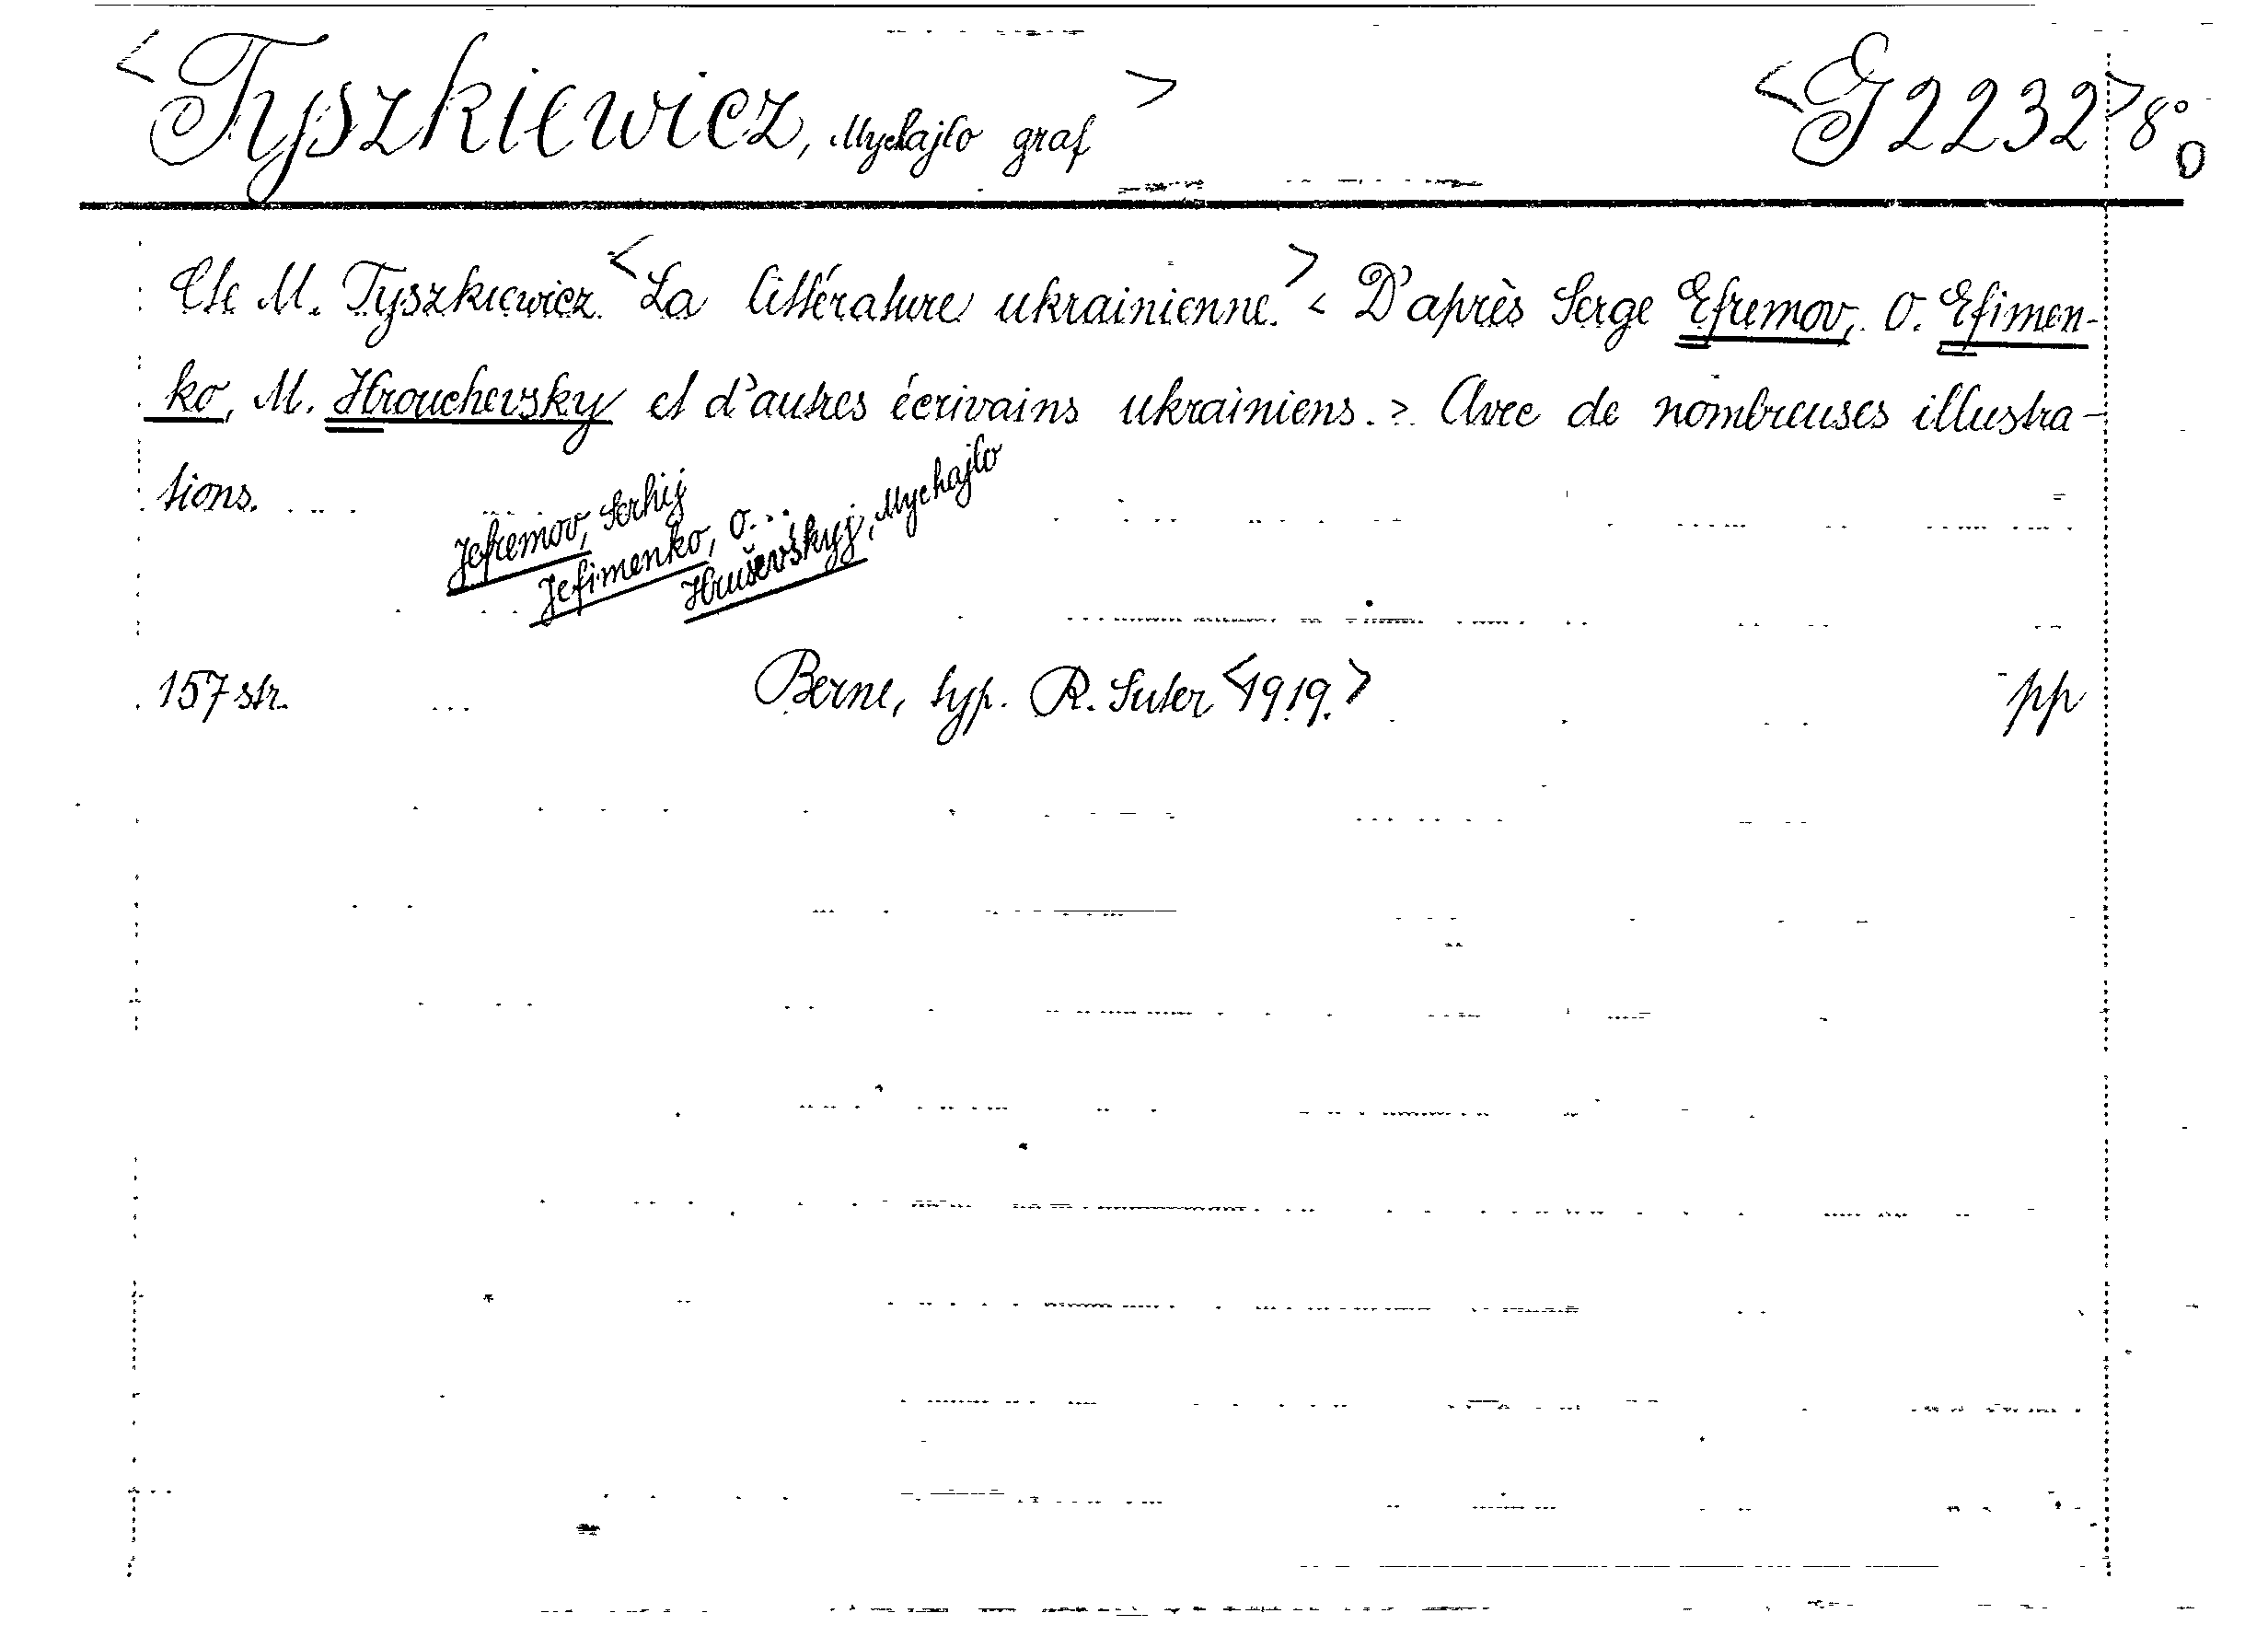 <Tyszkiewicz, Mychajlo graf> <G 2232> 8°
Cte M. Tyszkiewicz. <La littérature ukrainienne.> < D'après Serge Efremov, O. Efimen-
ko, M. Hrouchevsky et d'autres écrivains ukrainiens. > Avec de nombreuses illustra-
tions.
Jefremov, Serhij
Jefimenko, O...
Hruševśkyj, Mychajlo
157 str. Berne, typ. R. Suter <1919.> pp